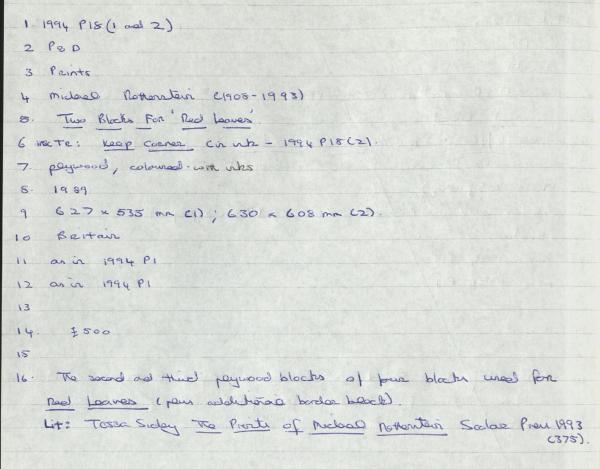 1 1994 P18 (1 and 2)
2 P & D
3 Prints
4 Michael Rothenstein (1908-1993)
5. Two Blocks For 'Red Leaves'
6 inscr: Keep Corner (in ink - 1994 P18 (2).
7. plywood, coloured with inks
8. 1989
9 627 x 535 mm (1) ; 630 x 608 mm (2).
10 Britain
11 as in 1994 P1
12 as in 1994 P1
13
14. £500
15
16. The second and third plywood blocks of four blocks used for
Red Leaves (plus additional border block).
Lit: Tessa Sidey The Prints of Michael Rothenstein Scolar Press 1993
(375).